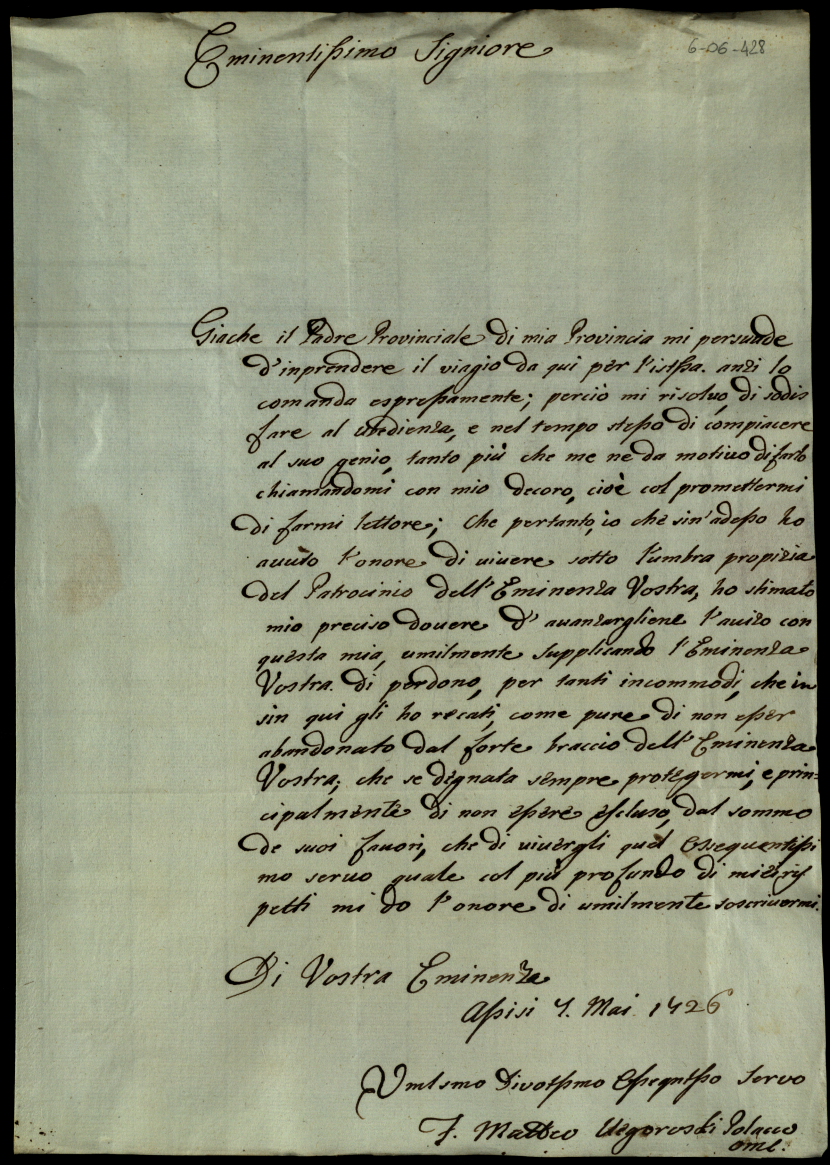 Eminentissimo Signiore
6-06-428
Giache il Padre Provinciale di mia Provincia mi persuade
d'inprendere il viagio da qui per l'istssa. anzi lo
comanda espressamente; perciò mi risoluo, di sodis
fare al ubedienza, e nel tempo stesso di compiacere
al suo genio, tanto più che me ne da motiuo di farlo
chiamandomi con mio decoro, cioè col promettermi
di farmi lettore; Che pertanto, io che sin'adesso ho
auuto l'onore di uiuere sotto l'umbra propizia
del Patrocinio dell'Eminenza Vostra, ho stimato
mio preciso douere d'auanzargliene l'auizo con
questa mia, umilmente supplicando l'Eminenza
Vostra. di perdono, per tanti incommodi, che in
sin qui gli ho recati, come pure di non esser
abandonato dal forte braccio dell'Eminenza
Vostra, che se dignata sempre protegermi, e prin=
cipalmente di non essere escluso, dal sommo
de suoi fauori, che di uiuergli quel Ossequentissi
mo seruo quale col più profundo di miei ris
petti mi do l'onore di umilmente soscriuermi.
Di Vostra Eminenza
Assisi 7. Mai 1726
Umlsmo Divotsmo Ossequtsso Servo
F. Matteo Polacco